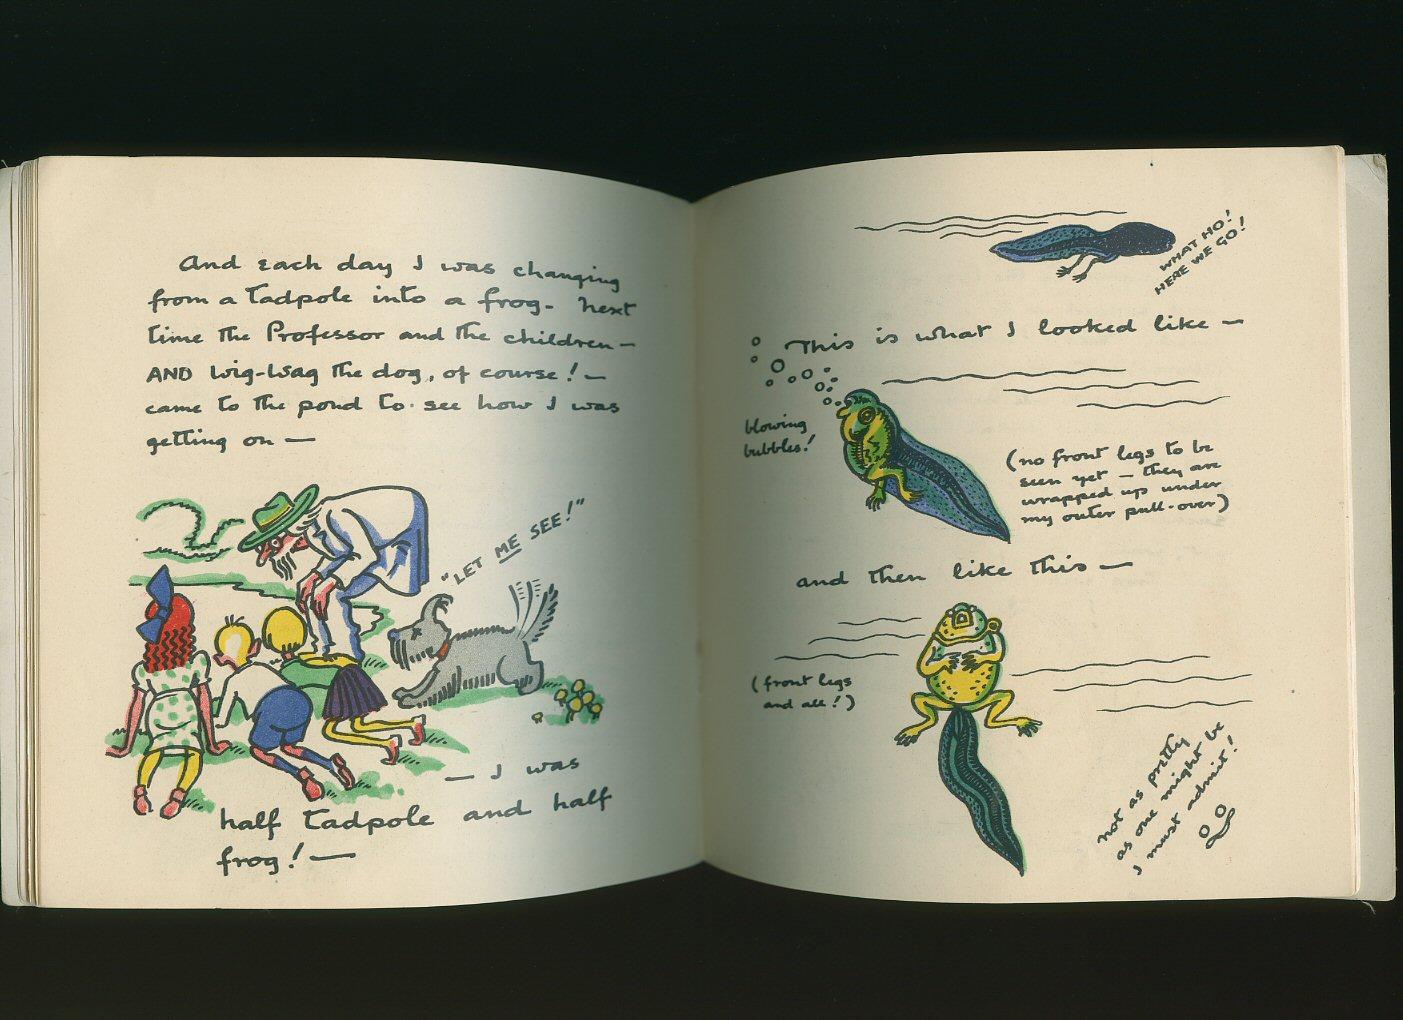 And each day I was changing
from a tadpole into a frog. Next
time the Professor and the children—
AND Wig-Wag the dog, of course!—
came to the pond to see how I was
getting on —
"LET ME SEE!"
— I was
half tadpole and half
frog! —
WHAT HO!
HERE WE GO!
This is what I looked like —
blowing
bubbles!
(no front legs to be
seen yet — they are
wrapped up under
my outer pull-over)
and then like this —
(front legs
and all!)
not as pretty
as one might be
I must admit!